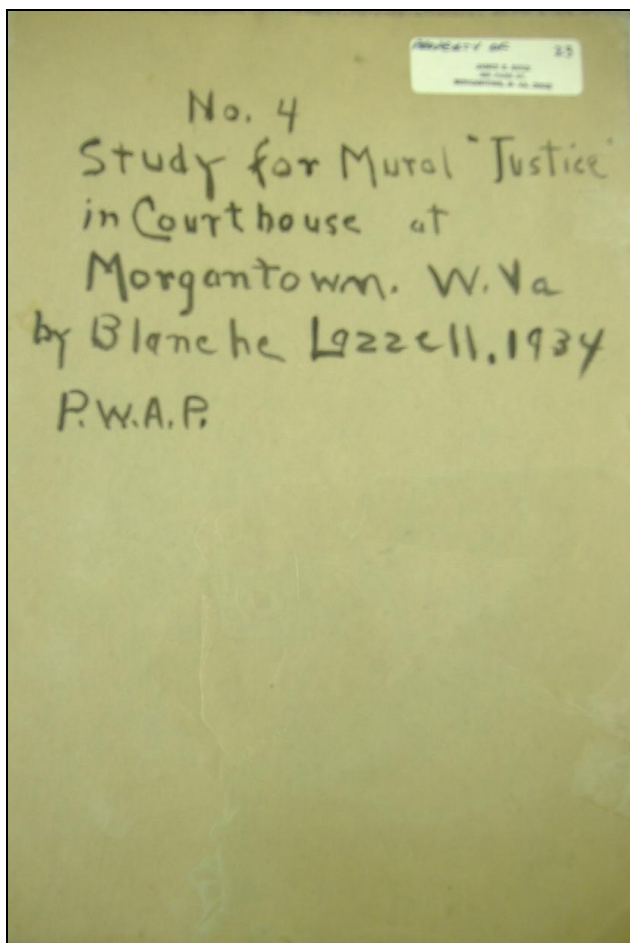 PROPERTY OF 23
No. 4
Study for Mural "Justice"
in Courthouse at
Morgantown. W.Va
by Blanche Lazzell. 1934
P.W.A.P.